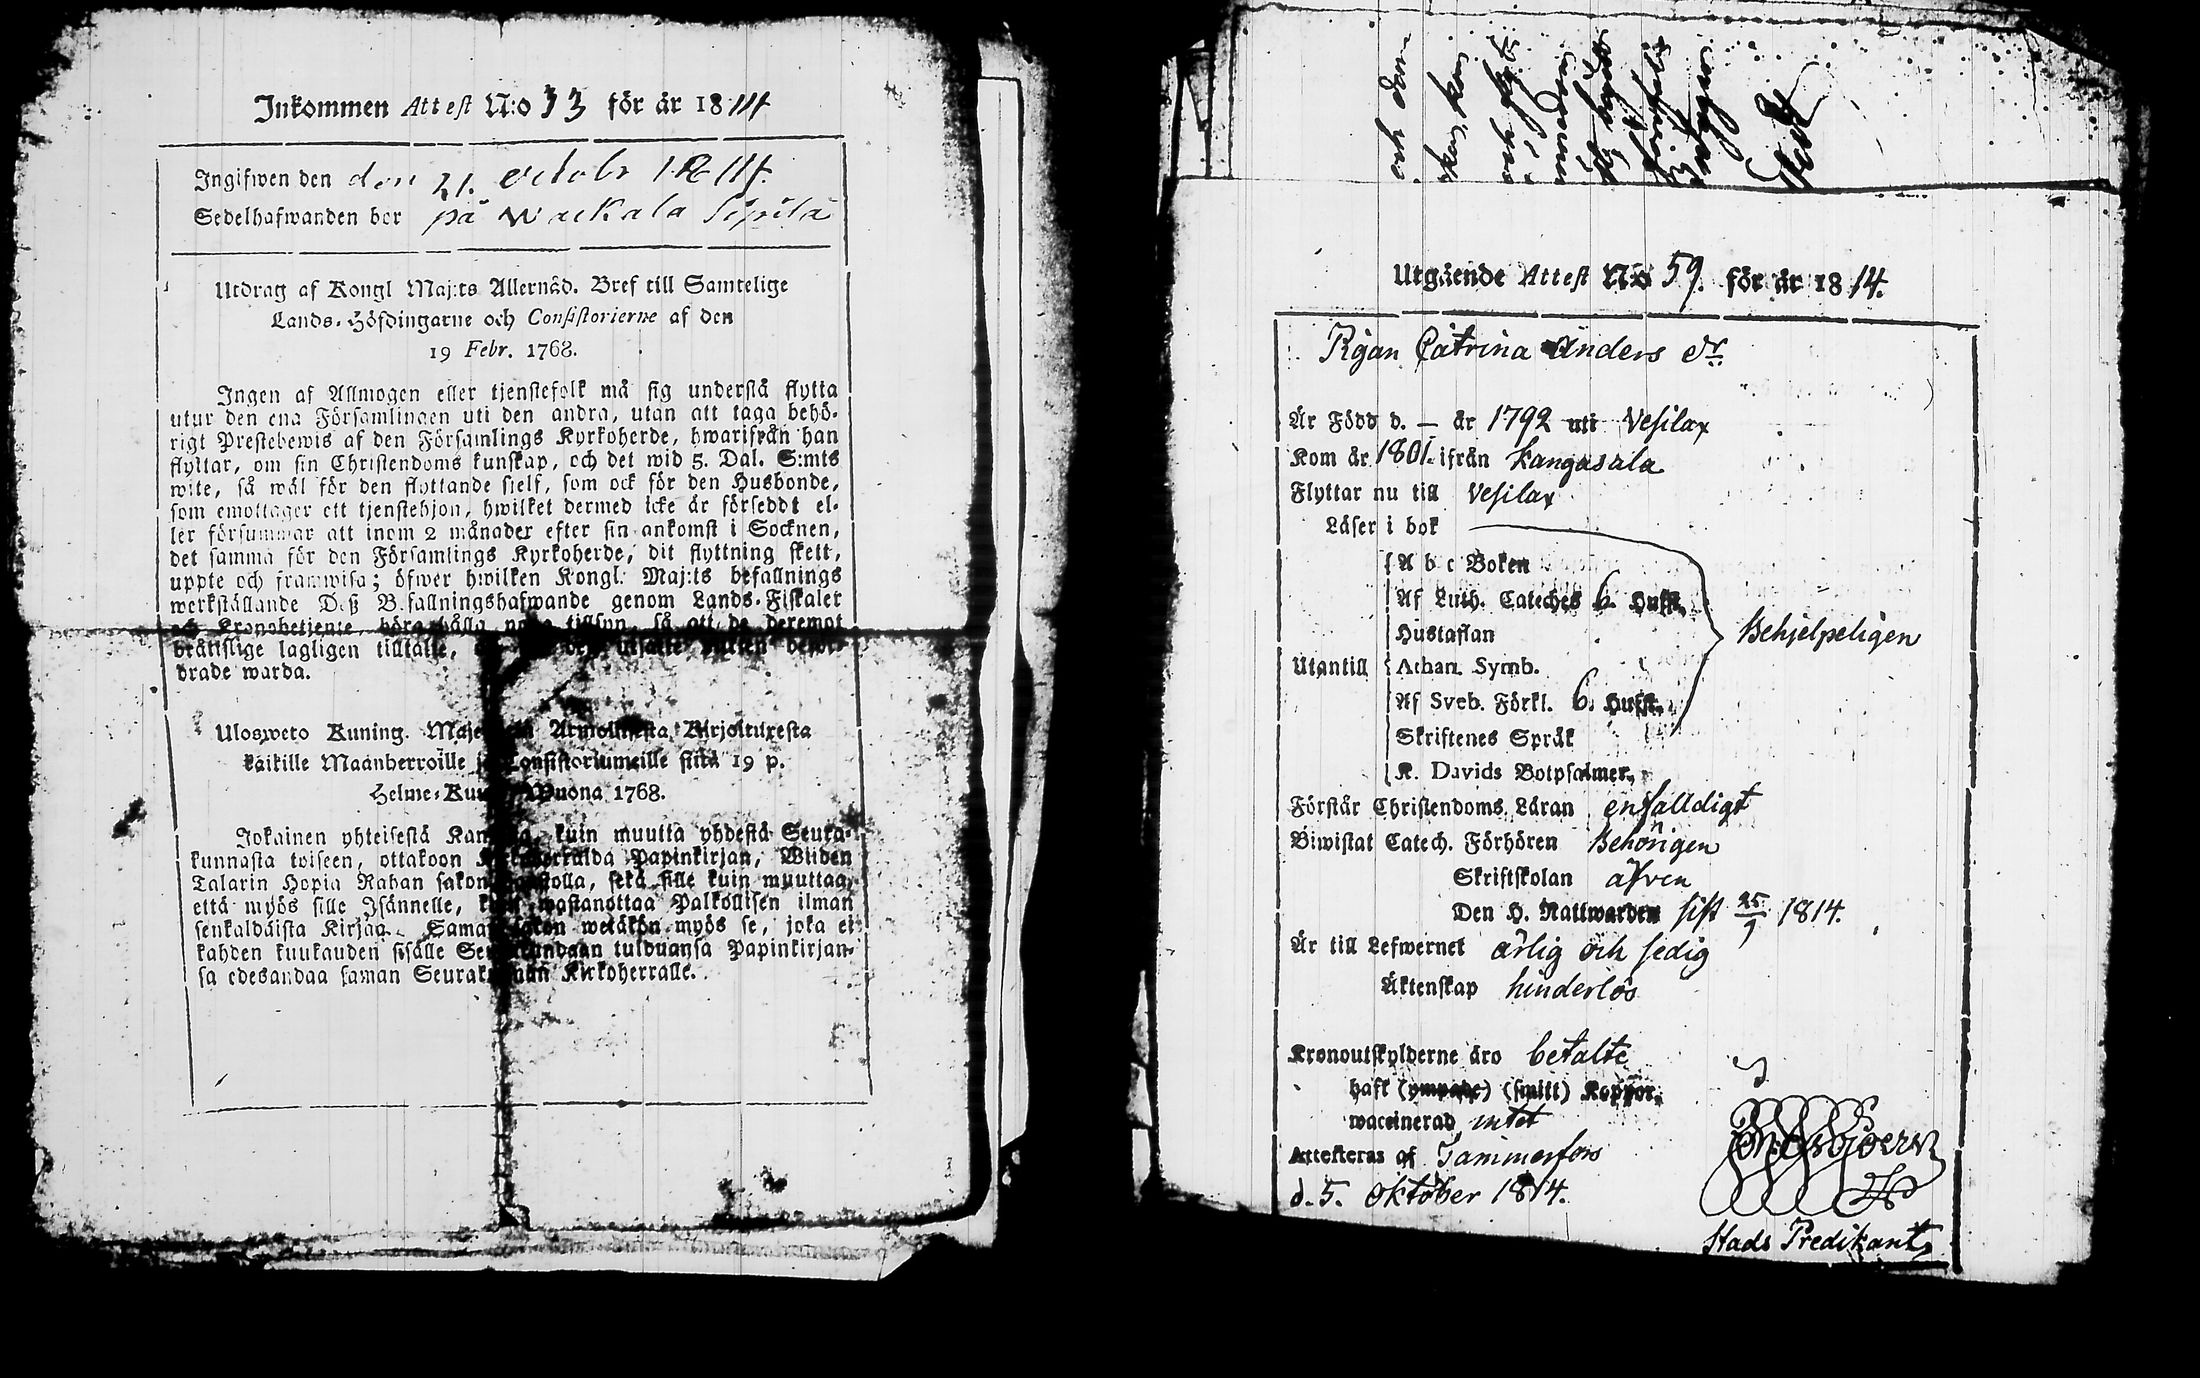 Inkommen Attest N:o 33 för år 1814
Ingifwen den den 21. october 1814.
Sedelhafwanden bor på Wackala Sipilä
Utdrag af Kongl Maj:ts Allernåd. Bref till Samtelige
Lands-Höfdingarne och Consistorierne af den
19 Febr. 1768.
Ingen af Allmogen eller tjenstefolk må sig understå flytta
utur den ena Församlingen uti den andra, utan att taga behö-
rigt Prestebewis af den Församlings Kyrkoherde, hwarifrån han
flyttar, om sin Christendoms kunskap, och det wid 5. Dal. S:mts
wite, så wäl för den flyttande sielf, som ock för den Husbonde,
som emottager ett tjenstehjon, hwilket dermed icke är förseddt el-
ler försummar att inom 2 månader efter sin ankomst i Socknen,
det samma för den Församlings Kyrkoherde, dit flyttning skett,
uppte och framwisa; öfwer hwilken Kongl. Maj:ts befallnings
werkställande Deß Befallningshafwande genom Lands-Fiskaler
och Kronobetjente, böra hålla noga tillsyn, så att de deremot
bråtslige lagligen tilltalte,
drade warda.
Ulosweto Kuning. Armollisesta Kirjoituxesta
kaikille Maanherroille ja Consistoriumeille siitä 19 p.
Helme-Kuu Wuona 1768.
Jokainen yhteisestä kuin muutta yhdestä Seura-
kunnasta toiseen, ottakoon Papinkirjan, Wiiden
Talarin Hopia Rahan sakon sekä sille kuin muuttaa,
että myös sille Isännelle, kuin wastanottaa Palkollisen ilman
senkaldaista Kirjaa. Saman sakon wetäkön myös se, joka ei
kahden kuukauden sisälle Seurakundaan tulduansa Papinkirjan-
sa edesandaa saman Seurakunnan Kirkoherralle.
och den
Utgående Attest N:o 59. för år 1814.
Pigan Catrina Anders dr.
Är Född d. — år 1792 uti Vesilax
Kom år 1801. ifrån Kangasala
Flyttar nu till Vesilax
Läser i bok
A b c Boken
Af Luth. Cateches 6. Hufst.
Hustaflan
Utantill Athan. Symb. Behjelpeligen
Af Sveb. Förkl. 6. Hufst.
Skriftenes Språk
K. Davids Botpsalmer.
Förstår Christendoms Läran enfalldigt
Biwistat Catech. Förhören Behörigen
Skriftskolan äfven
Den H. Nattwarden sist 25/9 1814.
Är till Lefwernet ärlig och sedig
Äktenskap hinderlös
Kronoutskylderne äro betalte
haft (ympade) (smitt) Koppor.
waccinerad intet
Attesteras af Tammerfors
d. 5. Oktober 1814.
Stads Predikant